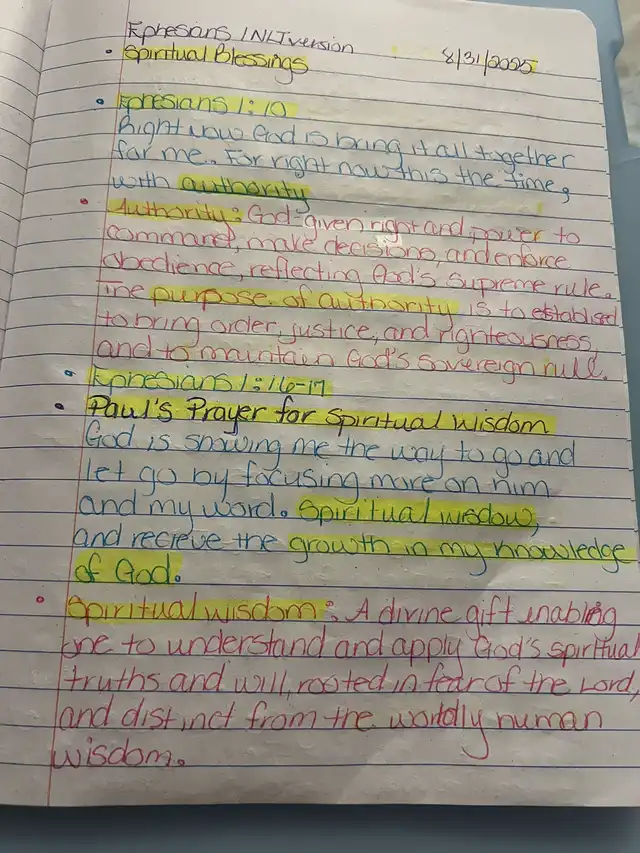 Ephesians 1 NLT version
8/31/2025
• Spiritual Blessings
• Ephesians 1:10
Right now God is bring it all together
for me. For right now this the time,
with authority
• Authority: God-given right and power to
command, make decisions, and enforce
obedience, reflecting God's supreme rule.
The purpose of authority is to establised
to bring order, justice, and righteousness,
and to maintain God's sovereign rull.
• Ephesians 1:16-17
• Paul's Prayer for Spiritual Wisdom
God is showing me the way to go and
let go by focusing more on him
and my word. Spiritual wisdow,
and recieve the growth in my knowledge
of God.
• Spiritual wisdom: A divine gift enabling
one to understand and apply God's spiritual
truths and will, rooted in fear of the Lord,
and distinct from the worldly human
wisdom.